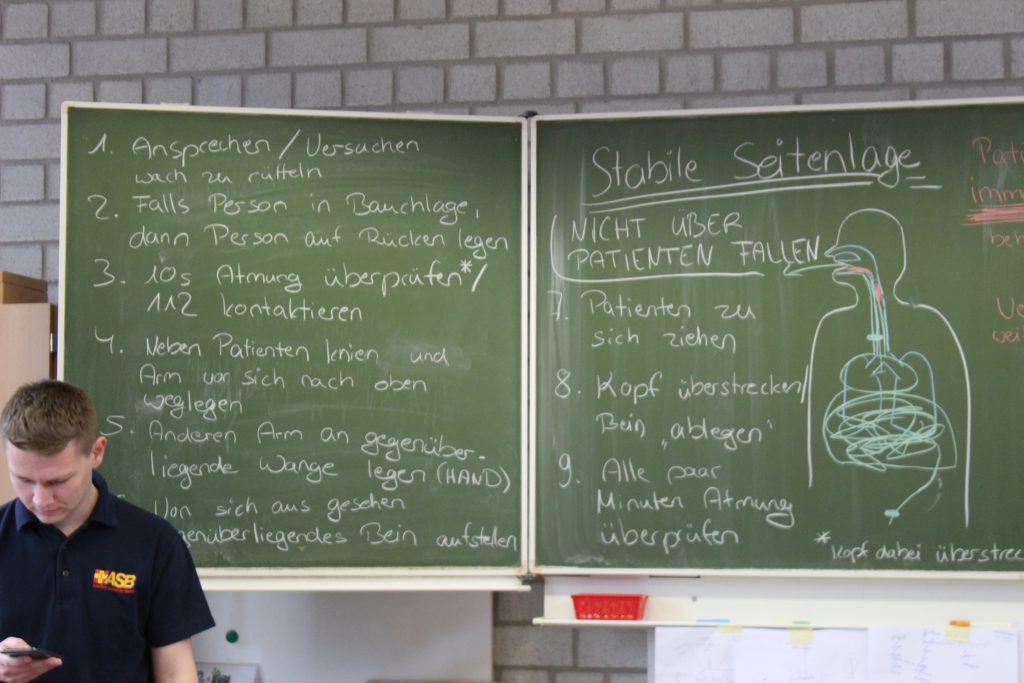 1. Ansprechen / Versuchen
wach zu rütteln
2. Falls Person in Bauchlage,
dann Person auf Rücken legen
3. 10s Atmung überprüfen* /
112 kontaktieren
4. Neben Patienten knien und
Arm vor sich nach oben
weglegen
5. Anderen Arm an gegenüber-
liegende Wange legen (HAND)
Von sich aus gesehen
enüberliegendes Bein aufstellen
Stabile Seitenlage
NICHT ÜBER
PATIENTEN FALLEN
7. Patienten zu
sich ziehen
8. Kopf überstrecken /
Bein „ablegen"
9. Alle paar
Minuten Atmung
überprüfen
* Kopf dabei überstrec
Pati
imm
beh
wei
ASB